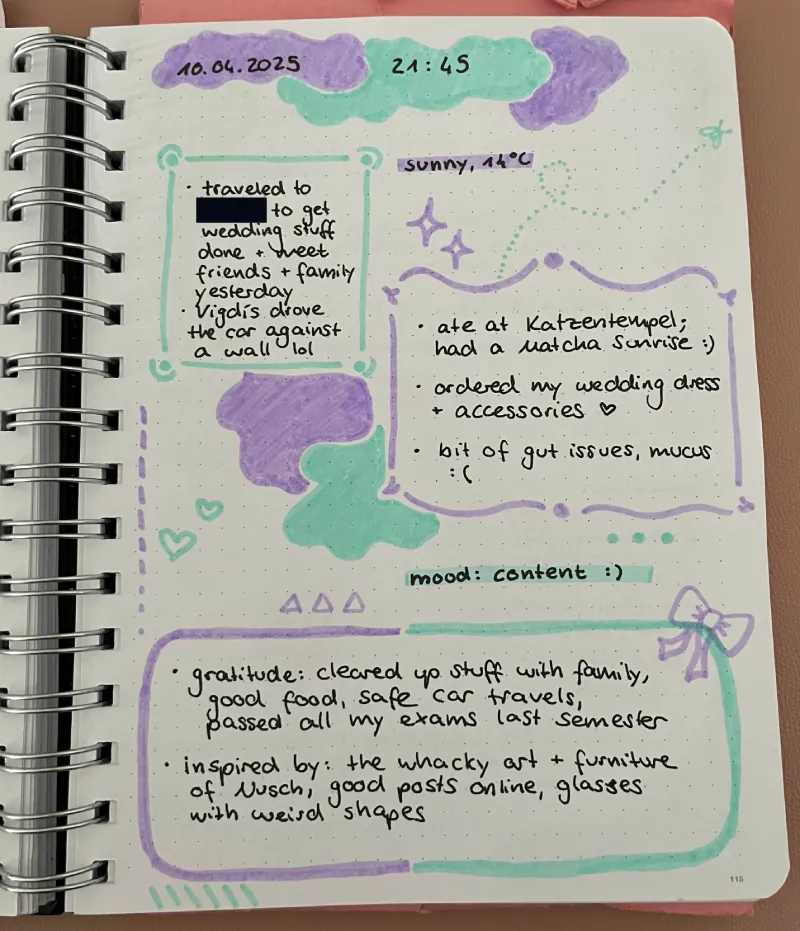 10.04.2025
21:45
sunny, 14°C
• traveled to
to get
wedding stuff
done + meet
friends + family
yesterday
• Vigdis drove
the car against
a wall lol
• ate at Katzentempel;
had a Matcha Sunrise :)
• ordered my wedding dress
+ accessories ♡
• bit of gut issues, mucus
:(
mood: content :)
• gratitude: cleared up stuff with family,
good food, safe car travels,
passed all my exams last semester
• inspired by: the whacky art + furniture
of Nusch, good posts online, glasses
with weird shapes
115